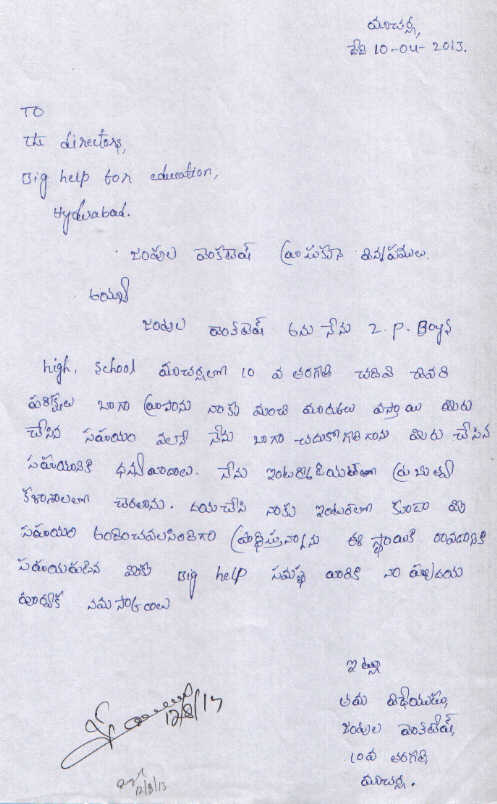 మాచర్ల,
తేది 10-04-2013.
TO
The directors,
Big help for education,
Hyderabad.
జంపుల వెంకటేష్ వ్రాసుకొన్న విన్నపములు.
అయ్యా
జంపుల వెంకటేష్ అను నేను Z. P. Boys
high, School మాచర్లలో 10 వ తరగతి చదివి చివరి
పరీక్షలు బాగా వ్రాసాను నాకు మంచి మార్కులు వస్తాయి మీరు
చేసిన సహాయం వలనే నేను బాగా చదువుకోగలిగాను మీరు చేసిన
సహాయానికి ధన్యవాదాలు. నేను ఇంటర్మీడియట్ ప్రభుత్వ
కళాశాలలో చేరతాను. దయచేసి నాకు ఇంటర్లో కూడా మీ
సహాయం అందించవలసిందిగా ప్రార్ధిస్తున్నాను ఈ స్థాయికి రావడానికి
సహాయపడిన మీకు Big help సమస్థ వారికి నా హృదయ
పూర్వక నమస్కారాలు
ఇట్లు
తమ విధేయుడు,
జంపుల వెంకటేష్,
10వ తరగతి,
మాచర్ల.
12/8/13
12/8/13